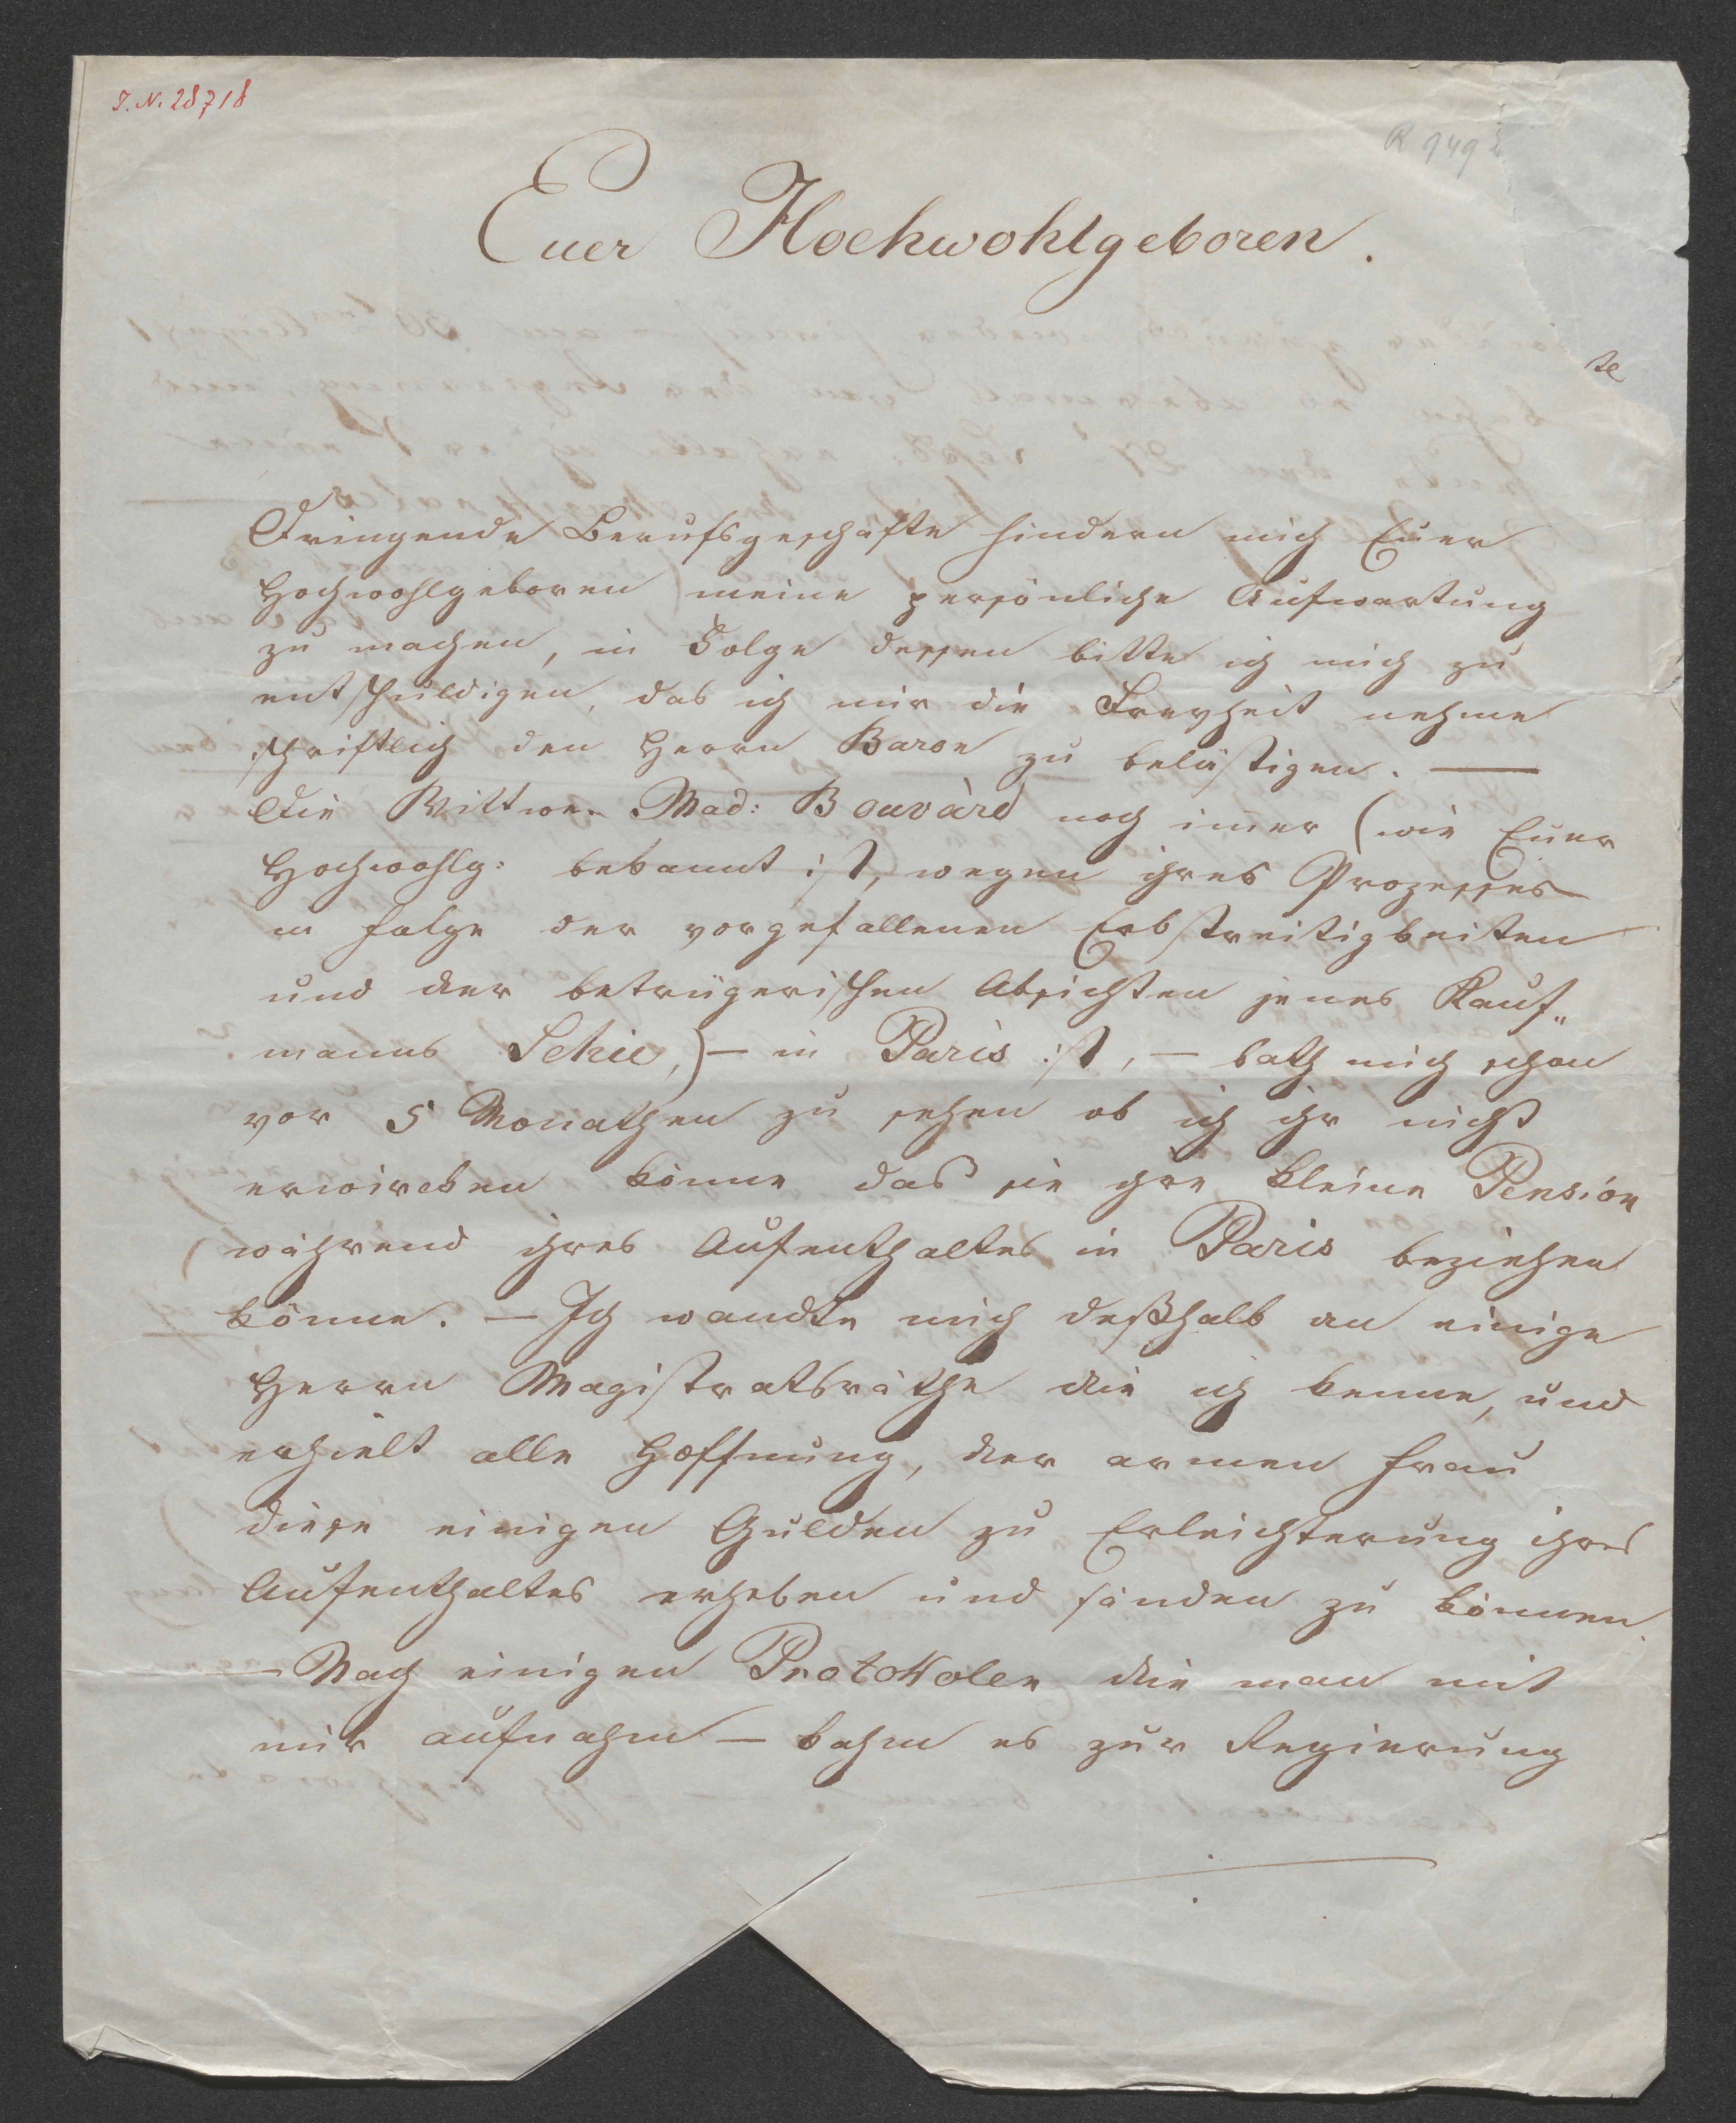 I. N. 28718
R 949
Euer Hochwohlgeboren.
te
Dringende Berufsgeschäfte hindern mich Euer
Hochwohlgeboren meine persönliche Aufwartung
zu machen, in Folge dessen bitte ich mich zu
entschuldigen, das ich mir die Freyheit nehme
schriftlich den Herrn Baron zu belästigen. —
Die Wittwe Mad: Bouvàrd noch imer (wie Euer
Hochwohlg: bekannt ist, wegen ihres Prozesses
in folge der vorgefallenen Erbstreitigkeiten
und der betrügerischen Absichten jenes Kauf„
manns Sehie,) — in Paris ist, — bath mich schon
vor 5 Monathen zu sehen ob ich ihr nicht
erwircken könne das sie ihre kleine Pension
während ihres Aufenthaltes in Paris beziehen
könne. — Ich wandte mich deßhalb an einige
Herrn Magistratsräthe die ich kenne, und
erhielt alle Hoffnung, der armen Frau
diese einigen Gulden zu Erleichterung ihres
Aufenthaltes erheben und sänden zu können.
— Nach einigen Protokolen die man mit
mir aufnahm — kahm es zur Regierung